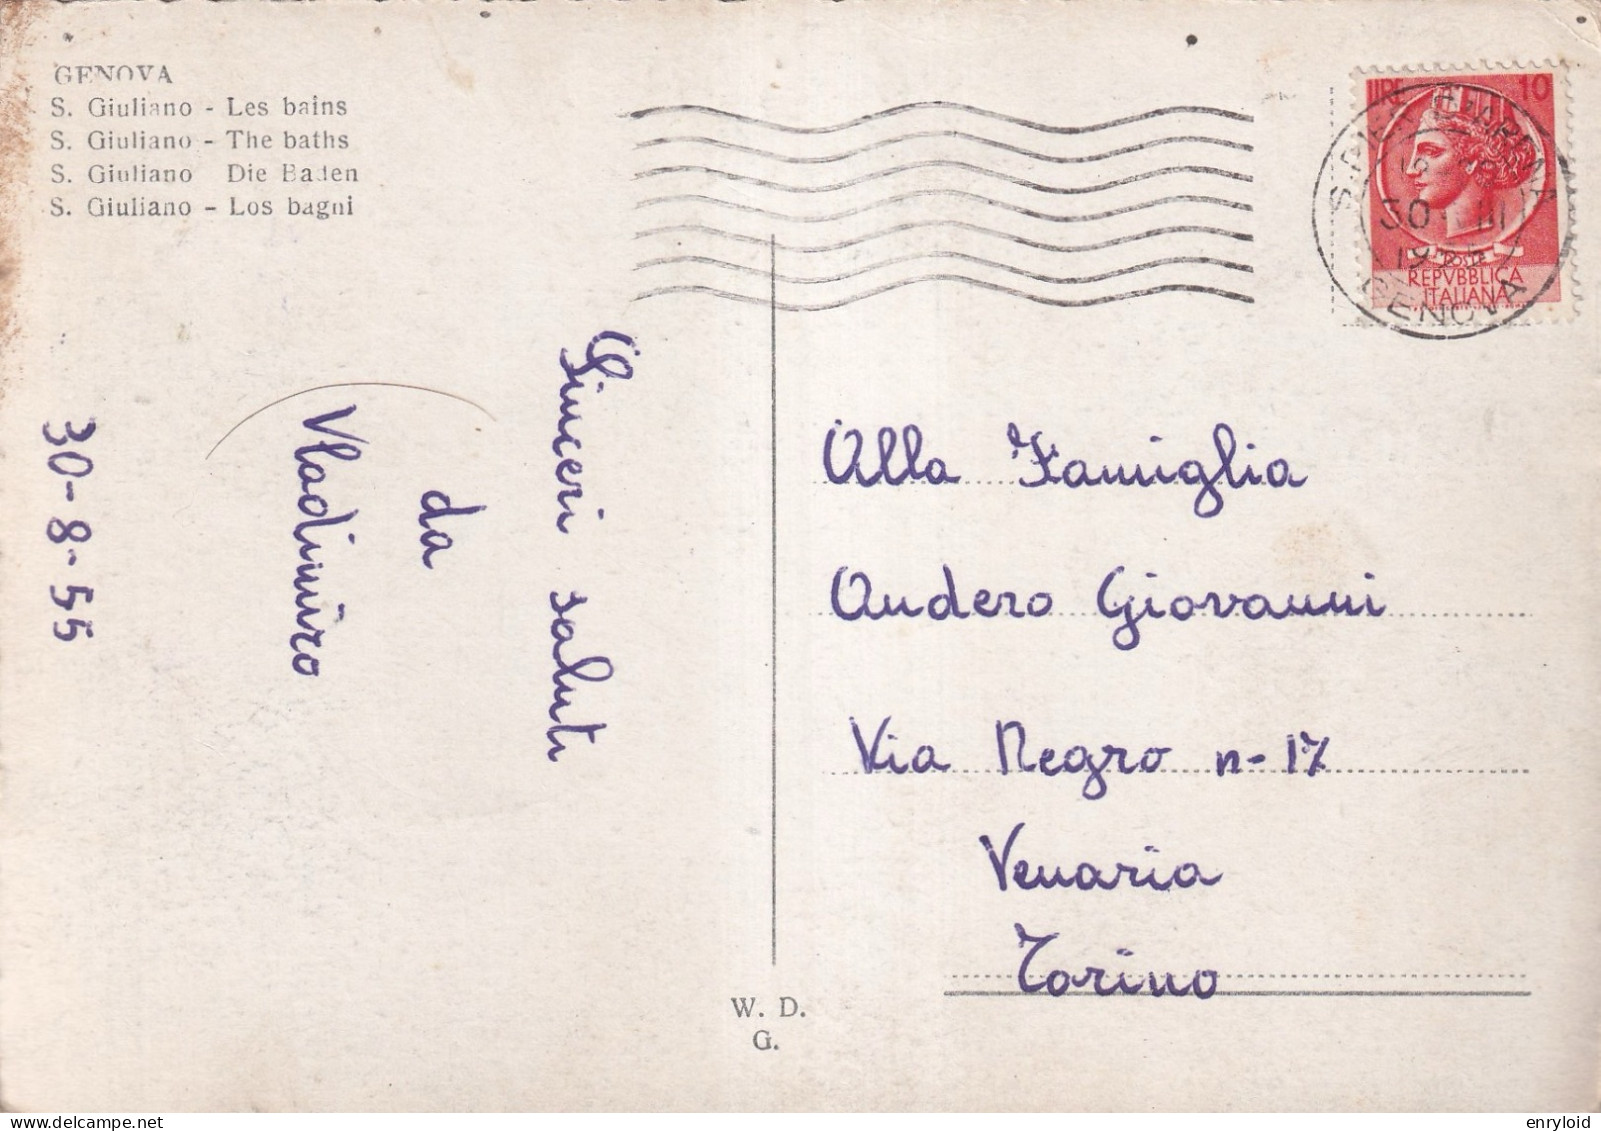 GENOVA
S. Giuliano - Les bains
S. Giuliano - The baths
S. Giuliano Die Baden
S. Giuliano - Los bagni
LIRE 10
POSTE
REPVBBLICA
ITALIANA
S. PIER D'ARENA
30 III
GENOVA
Sinceri saluti
da
Vladimiro
30-8-55
Alla Famiglia
Audero Giovanni
Via Negro n-17
Venaria
Torino
W. D.
G.
enryloid